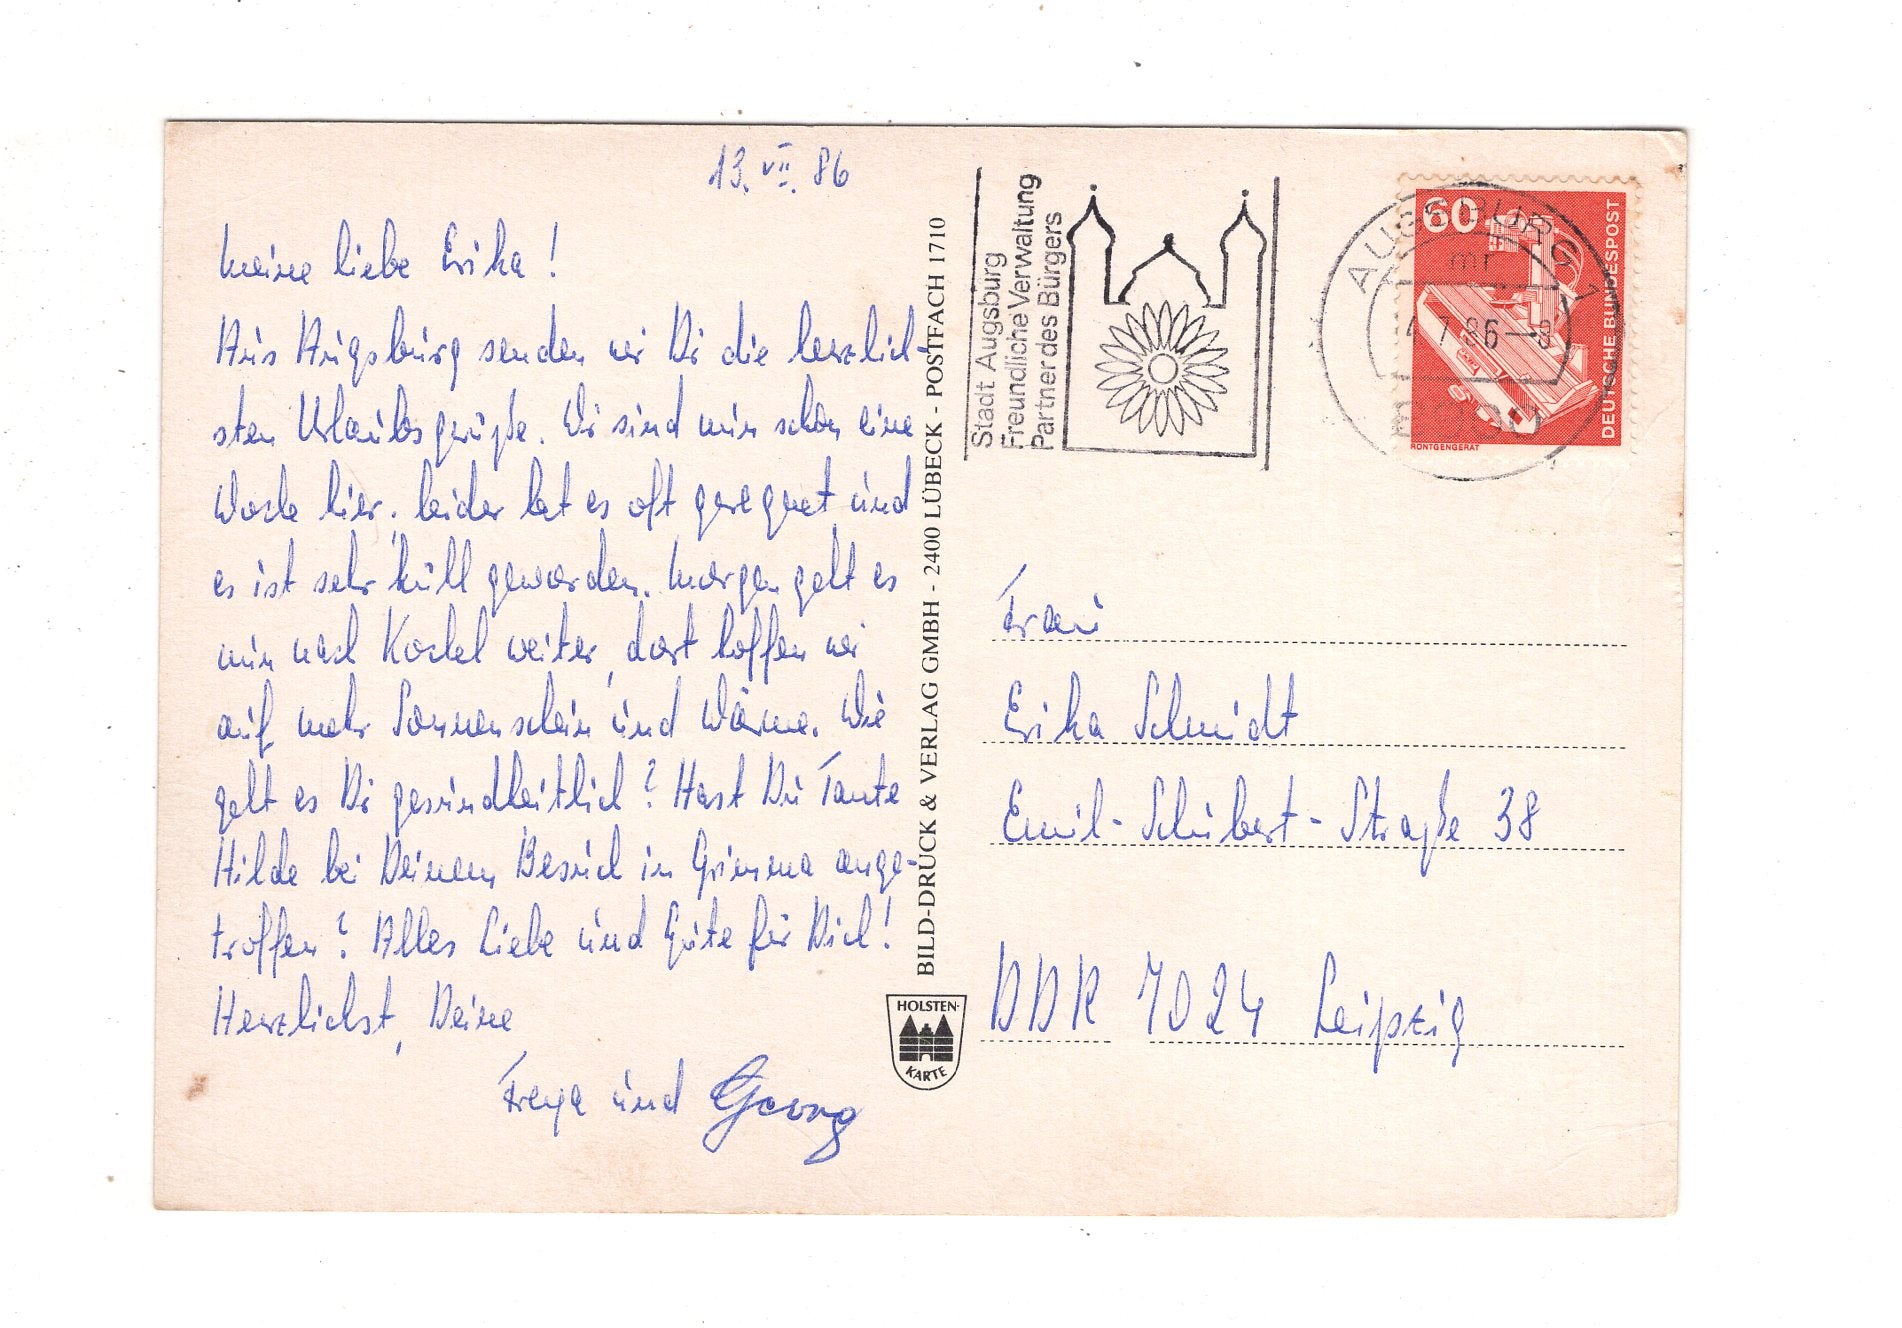 13. VII. 86
Meine liebe Erika!
Aus Augsburg senden wir Dir die herzlich-
sten Urlaubsgrüße. Wir sind nun schon eine
Woche hier, leider hat es oft geregnet und
es ist sehr kühl geworden. Morgen geht es
nun nach Kochel weiter, dort hoffen wir
auf mehr Sonnenschein und Wärme. Wie
geht es Dir gesundheitlich? Hast Du Tante
Hilde bei Deinem Besuch in Grimma ange-
troffen? Alles Liebe und Gute für Dich!
Herzlichst, Deine
Freya und Georg
BILD-DRUCK & VERLAG GMBH - 2400 LÜBECK - POSTFACH 1710
HOLSTEN-
KARTE
Stadt Augsburg
Freundliche Verwaltung
Partner des Bürgers
AUGSBURG 1
mr
4.7.86-8
8900
60
DEUTSCHE BUNDESPOST
RÖNTGENGERÄT
Frau
Erika Schmidt
Emil-Schubert-Straße 38
DDR 7024 Leipzig